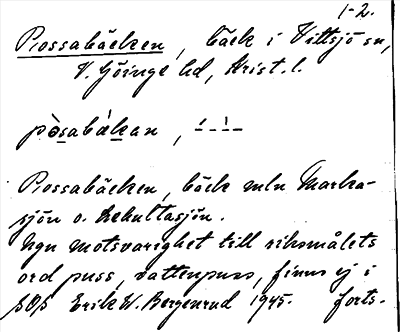 1-2.
Possabäcken, bäck i Vittsjö sn,
V. Göinge hd, Krist. l.
pòsabækan,
Possabäcken, bäck mln Marka-
sjön o. Lehultasjön.
Ngn motsvarighet till riksmålets
ord puss, vattenpuss, finns ej i
Erik W. Bergenrud 1945. forts.